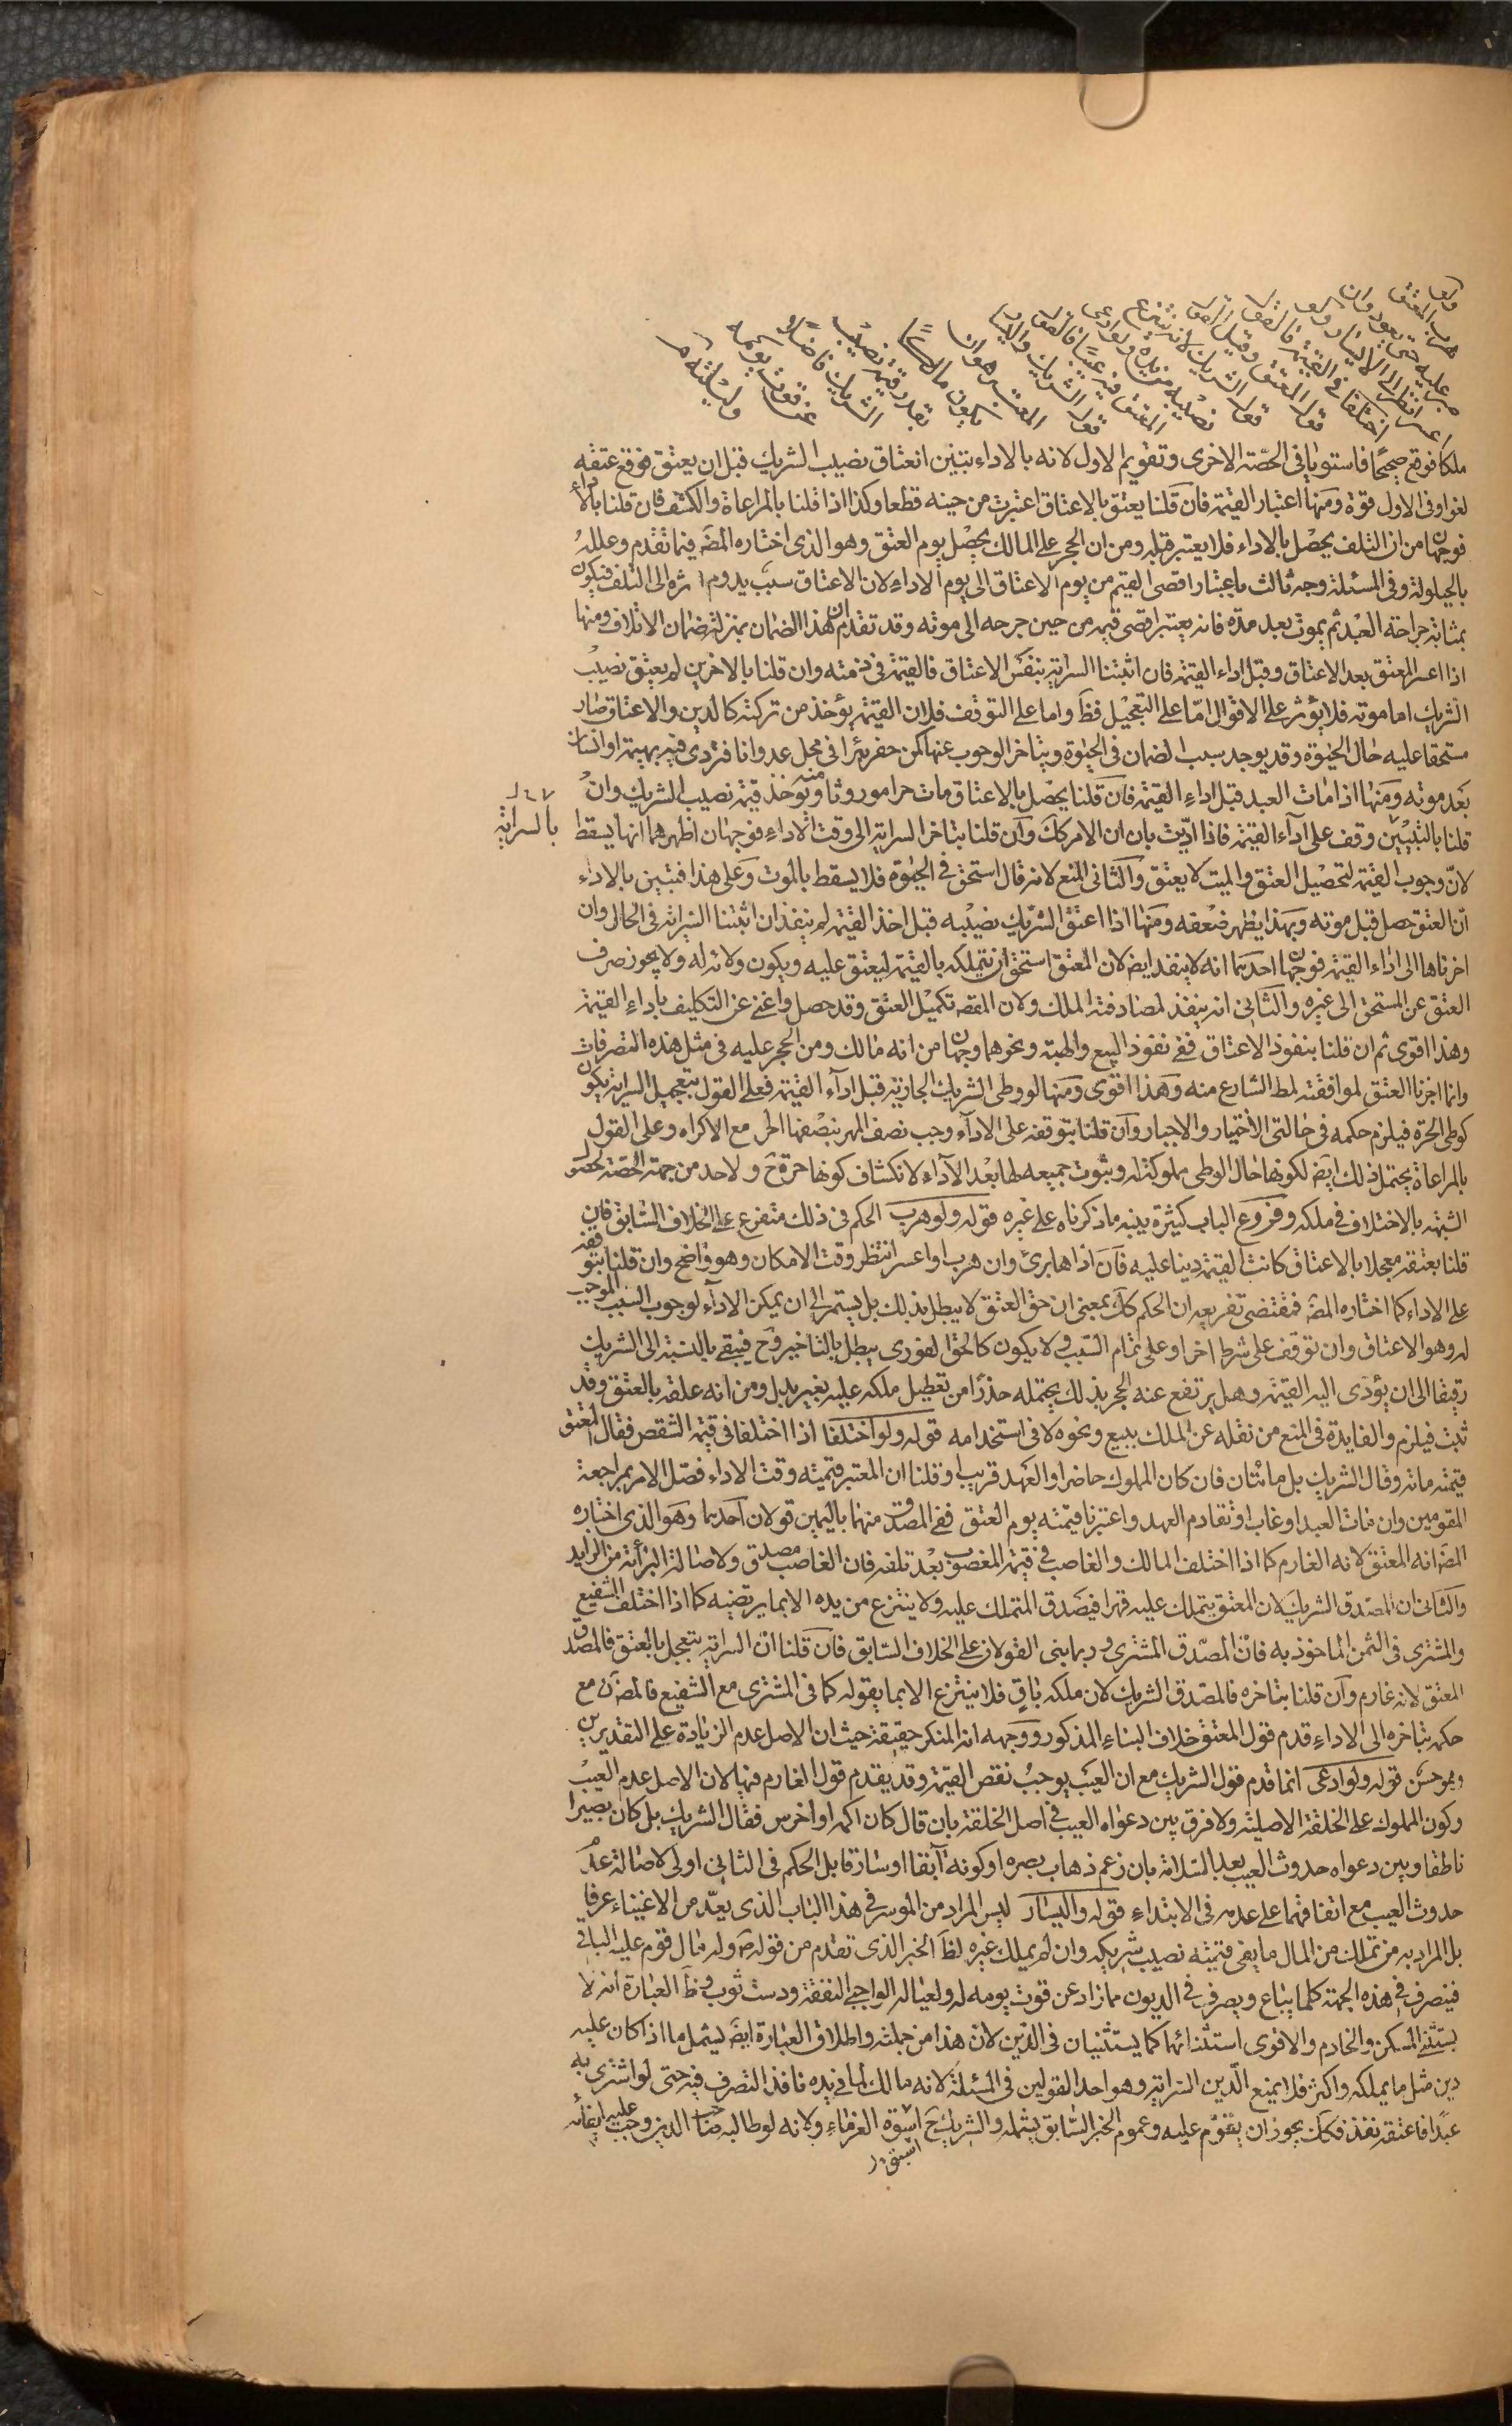 ولو هرب المعتق
صبر عليه حتى يعود وان
اعسر انظر الى الايسار ولو
اختلفا في القيمة فالقول
قول المعتق وقيل القول
قول الشريك لانه ينتزع
نصيبه من يده ولو ادعى
المعتق فيه عيبا فالقول
قول الشريك واليسار
المعتبر هو ان
يكون مالكا
بقدر قيمة نصيب
الشريك فاضلا
عن قوت يومه
وليلته
ملكا فوقع صحيحا فاستويا في الحصة الاخرى وتقويم الاول لانه بالاداء تبين انعتاق نصيب الشريك قبل ان يعتق فوقع عتقه
لغوا وفي الاول قوة ومنها اعتبار القيمة فان قلنا يعتق بالاعتاق اعتبرت من حينه قطعا وكذا اذا قلنا بالمراعاة والكشف فان قلنا بالاداء
فوجهان من ان التلف يحصل بالاداء فلا يعتبر قبله ومن ان الحجر على المالك يحصل يوم العتق وهو الذي اختاره المصَ فيما تقدم وعلله
بالحيلولة وفي المسئلة وجه ثالث باعتبار اقصى القيم من يوم الاعتاق الى يوم الاداء لان الاعتاق سبب يدوم اثره الى التلف فيكون
بمثابة جراحة العبد ثم يموت بعد مدة فانه يعتبر اقصى قيمه من حين جرحه الى موته وقد تقدم ان هذا الضمان بمنزلة ضمان الاتلاف ومنها
اذا اعسر المعتق بعد الاعتاق وقبل اداء القيمة فان اثبتنا السراية بنفس الاعتاق فالقيمة في ذمته وان قلنا بالاخرين لم يعتق نصيب
الشريك اما موته فلا يؤثر على الاقوال امّا على التعجيل فظَ واما على التوقف فلان القيمة يؤخذ من تركته كالدين والاعتاق صار
مستحقا عليه حال الحيوة وقد يوجد سبب الضمان في الحيوة ويتاخر الوجوب عنها كمن حفر بئرا في محل عدوانا فتردى فيه بهيمة او انسان
بعد موته ومنها اذا مات العبد قبل اداء القيمة فان قلنا يحصل بالاعتاق مات حرا موروثا منه ويؤخذ قيمة نصيب الشريك وان
قلنا بالتبيين وقف على اداء القيمة فاذا اديت بان ان الامر كك وان قلنا بتاخر السراية الى وقت الاداء فوجهان اظهرهما انها يسقط
بالسراية
لانّ وجوب القيمة لتحصيل العتق والميت لا يعتق والثاني المنع لانه قال استحق في الحيوة فلا يسقط بالموت وعلى هذا فيتبين بالاداء
انّ العتق حصل قبل موته وبهذا يظهر ضعفه ومنها اذا اعتق الشريك نصيبه قبل اخذ القيمة لم ينفذ ان اثبتنا السراية في الحال وان
اخرناها الى اداء القيمة فوجهان احدهما انه لا ينفذ ايضَ لان المعتق استحق ان يتملكه بالقيمة ليعتق عليه ويكون ولائه له ولا يجوز صرف
العتق عن المستحق الى غيره والثاني انه ينفذ لمصادفته الملك ولان المقصَ تكميل العتق وقد حصل واغنى عن التكليف باداء القيمة
وهذا اقوى ثم ان قلنا بنفوذ الاعتاق ففي نفوذ البيع والهبة ونحوهما وجهان من انه مالك ومن الحجر عليه في مثل هذه التصرفات
وانما اجزنا العتق لموافقته لمطَ الشارع منه وهذا اقوى ومنها لو وطى الشريك الجارية قبل اداء القيمة فعلى القول بتعجيل السراية يكون
كوطى الحرة فيلزم حكمه في حالتي الاختيار والاجبار وان قلنا بتوقفه على الاداء وجب نصف المهر بنصفها الحر مع الاكراه وعلى القول
بالمراعاة يحتمل ذلك ايضَ لكونها حال الوطى مملوكة له وثبوت جميعه لها بعد الاداء لانكشاف كونها حرة حَ ولا حد من جهة الحصة لحصول
الشبهة بالاختلاف في ملكه وفروع الباب كثيرة ينبه ما ذكرناه على غيره قوله ولو هرب الحكم في ذلك متفرع على الخلاف السابق فان
قلنا بعتقه معجلا بالاعتاق كانت القيمة دينا عليه فان اداها برئ وان هرب او اعسر انتظر وقت الامكان وهو واضح وان قلنا بتوقفه
على الاداء كما اختاره المصَ فمقتضى تفريعه ان الحكم كك بمعنى ان حق العتق لا يبطل بذلك بل يستمر الى ان يمكن الاداء لوجوب السبب الموجب
له وهو الاعتاق وان توقف على شرط اخر او على تمام السبب ولا يكون كالحق الفوري يبطل بالتاخير وحَ فيبقى بالنسبة الى الشريك
رقيقا الى ان يؤدى اليه القيمة وهل يرتفع عنه الحجر بذلك يحتمله حذرا من تعطيل ملكه عليه بغير بدل ومن انه علقه بالعتق وقد
ثبت فيلزم والفايدة في المنع من نقله عن الملك ببيع ونحوه لا في استخدامه قوله ولو اختلفا اذا اختلفا في قيمة الشقص فقال المعتق
قيمته مائة وقال الشريك بل مائتان فان كان المملوك حاضرا والعهد قريب او قلنا ان المعتبر قيمته وقت الاداء فصل الامر بمراجعة
المقومين وان مات العبد او غاب او تقادم العهد واعتبرنا قيمته يوم العتق ففي المصدق منهما باليمين قولان احدهما وهو الذي اختاره
المصَ انه المعتق لانه الغارم كما اذا اختلف المالك والغاصب في قيمة المغصوب بعد تلفه فان الغاصب مصدق ولاصالة البرائة من الزايد
والثاني ان المصدق الشريك لان المعتق يتملك عليه قهرا فيصدق المتملك عليه ولا ينتزع من يده الا بما يرتضيه كما اذا اختلف الشفيع
والمشتري في الثمن الماخوذ به فان المصدق المشتري وربما بنى القولان على الخلاف السابق فان قلنا ان السراية يتعجل بالعتق فالمصدق
المعتق لانه غارم وان قلنا بتاخره فالمصدق الشريك لان ملكه باقٍ فلا ينتزع الا بما يقوله كما في المشتري مع الشفيع فالمصَ مع
حكمه بتاخره الى الاداء قدم قول المعتق خلاف البناء المذكور ووجهه انه المنكر حقيقة حيث ان الاصل عدم الزيادة على التقديرين
وهو حسن قوله ولو ادعى انما قدم قول الشريك مع ان العيب يوجب نقص القيمة وقد يقدم قول الغارم فيها لان الاصل عدم العيب
وكون المملوك على الخلقة الاصلية ولا فرق بين دعواه العيب في اصل الخلقة بان قال كان اكمه او اخرس فقال الشريك بل كان بصيرا
ناطقا وبين دعواه حدوث العيب بعد السلامة بان زعم ذهاب بصره او كونه ابقا او سارقا بل الحكم في الثاني اولى لاصالة عدم
حدوث العيب مع اتفاقهما على عدمه في الابتداء قوله واليسار ليس المراد من الموسر في هذا الباب الذي يعدّ من الاغنياء عرفا
بل المراد به من تملك من المال ما يفي بقيمته نصيب شريكه وان لم يملك غيره لظَ الخبر الذي تقدم من قوله صَ وله مال قوم عليه الباقي
فيصرف في هذه الجهة كلما يباع ويصرف في الديون مازاد عن قوت يومه له ولعياله الواجبى النفقة ودست ثوب وظَ العبارة انه لا
يستثنى المسكن والخادم والاقوى استثنائهما كما يستثنيان في الدين لان هذا من جملته واطلاق العبارة ايضَ يشمل ما اذا كان عليه
دين مثل ما يملكه واكثر فلا يمنع الدين السراية وهو احد القولين في المسئلة لانه مالك لما في يده نافذ التصرف فيه حتى لو اشترى به
عبدا فاعتقه نفذ فكك يجوز ان يقوّم عليه وعموم الخبر السابق يشمله والشريك حَ اسوة الغرماء ولانه لو طالبه صاحب الدين وجب عليه ايفائه